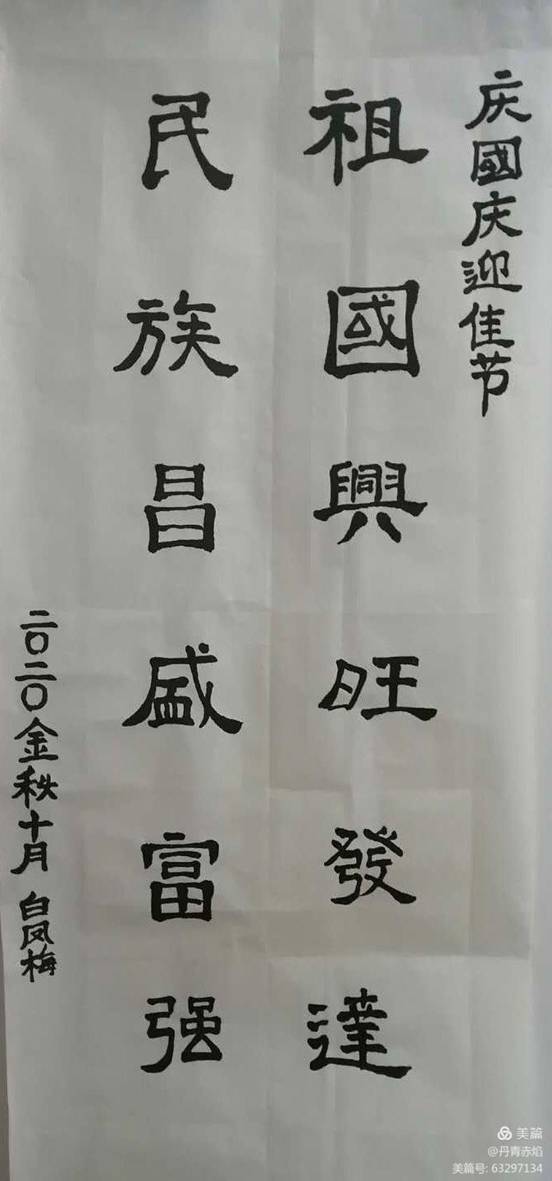 庆國庆迎佳节
祖國興旺發達
民族昌盛富强
二〇二〇金秩十月 白凤梅
美篇
@丹青赤焰
美篇号: 63297134